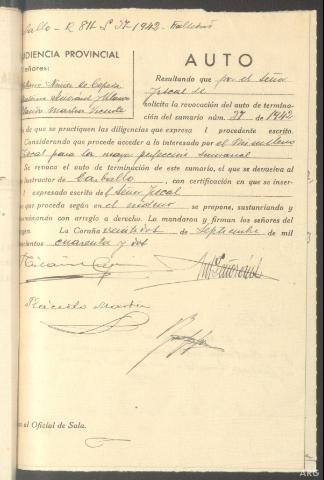 ballo - R 811 Nº 37-1942 -
UDIENCIA PROVINCIAL
eñores:
AUTO
Resultando que por el Señor
Fiscal se
solicita la revocación del auto de termina-
ción del sumario núm. 37 de 1942
de que se practiquen las diligencias que expresa l precedente escrito.
Considerando que procede acceder a lo interesado por el Ministerio
iscal para la mayor perfección sumarial
Se revoca el auto de terminación de este sumario, el que se devuelva al
Instructor de Carballo, con certificación en que se inser-
expresado escrito del Señor Fiscal
que proceda según en el mismo se propone, sustanciando y
terminándolo con arreglo a derecho. La mandaron y firman los señores del
rgen. La Coruña veintidós de Septiembre de mil
ecientos cuarenta y dos
Plácido Martin
el Oficial de Sala.
ARG